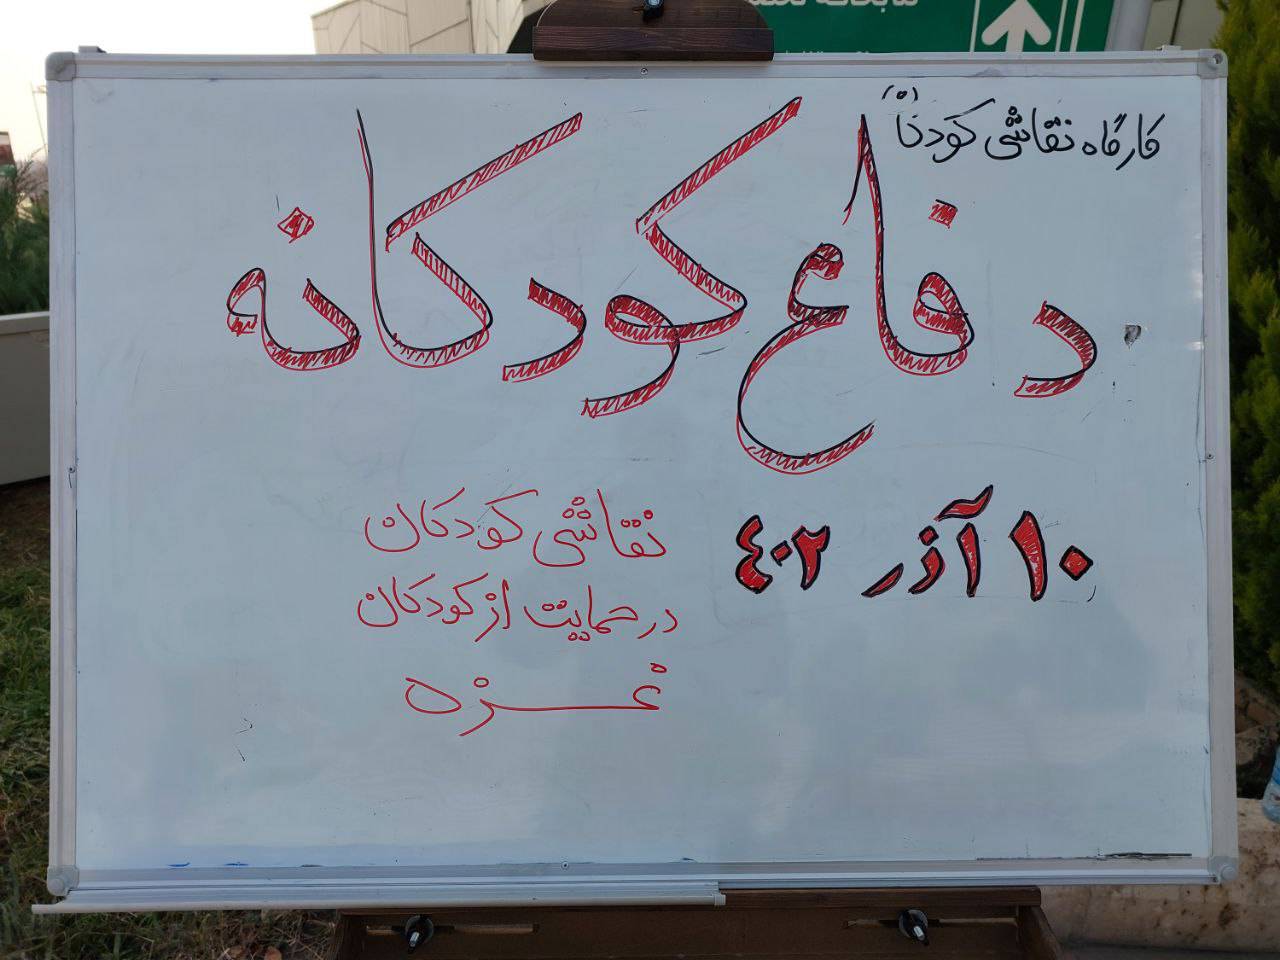 کارگاه نقاشی کودکا
(۵)
دفاع کودکانه
۱۰ آذر ۴۰۲
نقاشی کودکان
در حمایت از کودکان
غزه